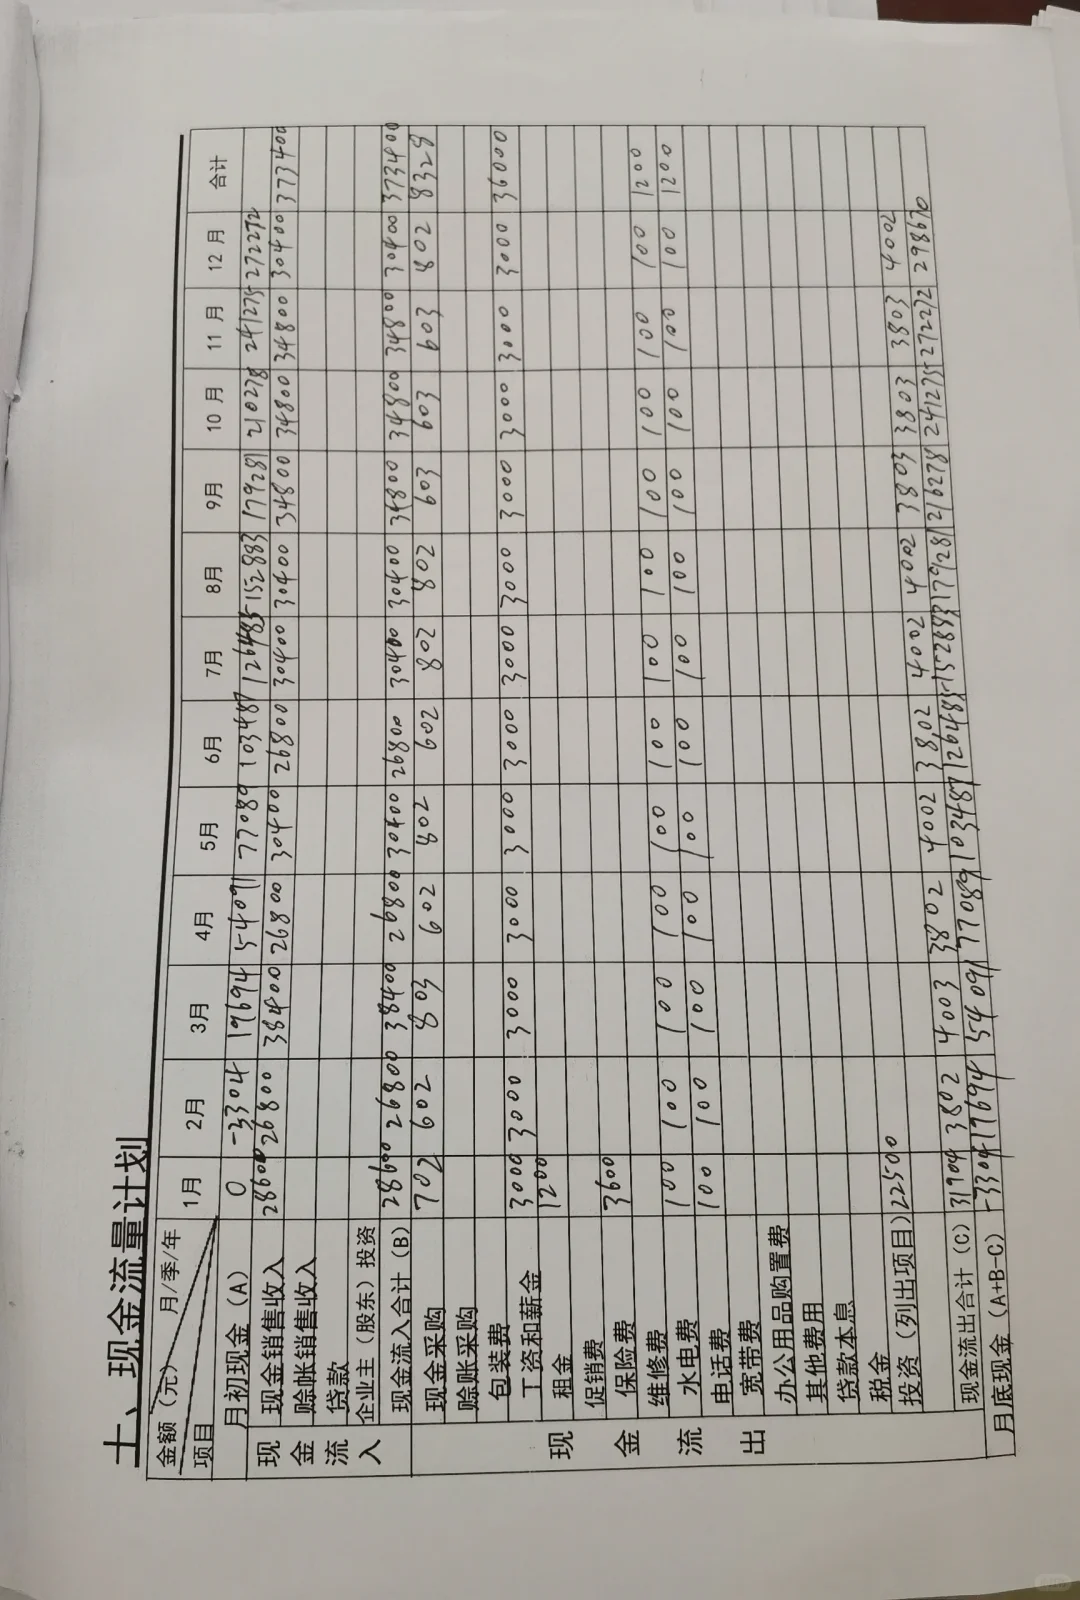 十、现金流量计划
金额（元） 月/季/年 项目 1月 2月 3月 4月 5月 6月 7月 8月 9月 10月 11月 12月 合计
月初现金（A） 0 -3304 19694 54091 77089 103487 126485 152883 179281 210278 241275 272272
现金流入 现金销售收入 28600 26800 38400 26800 30400 26800 30400 30400 34800 34800 34800 30400 373400
赊帐销售收入
贷款
企业主（股东）投资
现金流入合计（B） 28600 26800 38400 26800 30400 26800 30400 30400 34800 34800 34800 30400 373400
现金流出 现金采购 702 602 803 602 802 602 802 802 603 603 603 802 8328
赊账采购
包装费
工资和薪金 3000 3000 3000 3000 3000 3000 3000 3000 3000 3000 3000 3000 36000
租金 1200
促销费
保险费 3600
维修费 100 100 100 100 100 100 100 100 100 100 100 100 1200
水电费 100 100 100 100 100 100 100 100 100 100 100 100 1200
电话费
宽带费
办公用品购置费
其他费用
贷款本息
税金
投资（列出项目） 22500
现金流出合计（C） 31904 3802 4003 3802 4002 3802 4002 4002 3803 3803 3803 4002
月底现金（A+B-C） -3304 19694 54091 77089 103487 126485 152883 179281 210278 241275 272272 298670